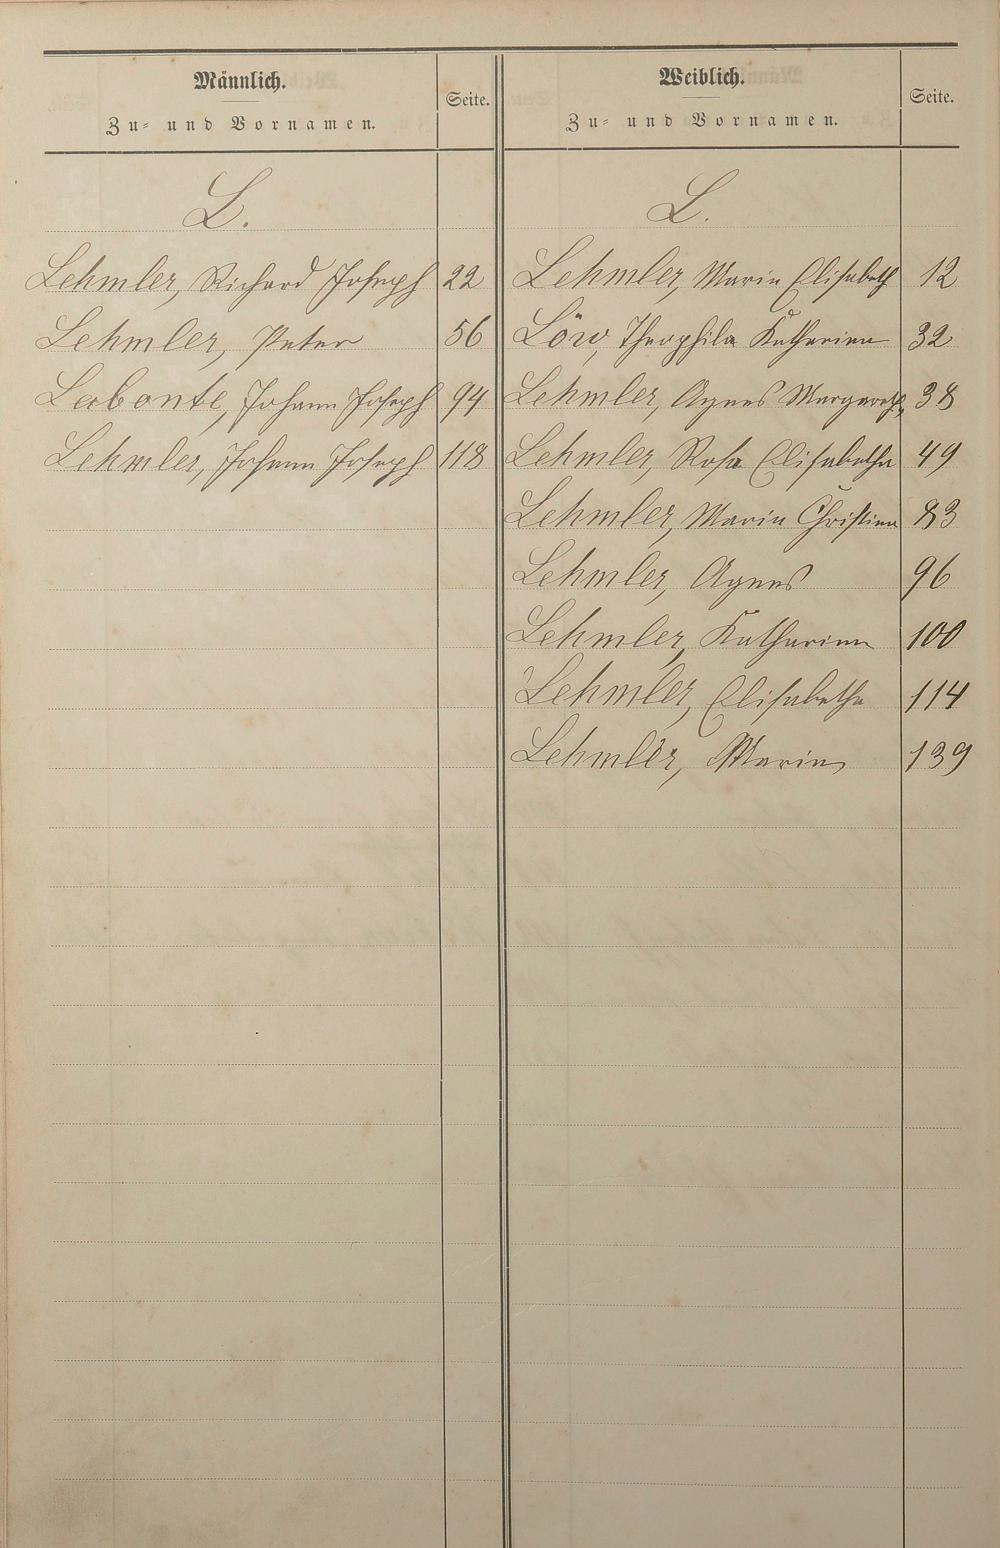 Männlich.
Zu- und Vornamen.
Seite.
L.
Lehmler, Richard Joseph 22
Lehmler, Peter 56
Labonte, Johann Joseph 94
Lehmler, Johann Joseph 118
Weiblich.
Zu- und Vornamen.
Seite.
L.
Lehmler, Maria Elisabeth 12
Löw, Theophila Katharina 32
Lehmler, Agnes Margareth, 38
Lehmler, Rosa Elisabetha 49
Lehmler, Maria Christina 83
Lehmler, Agnes 96
Lehmler, Katharina 100
Lehmler, Elisabetha 114
Lehmler, Maria 139